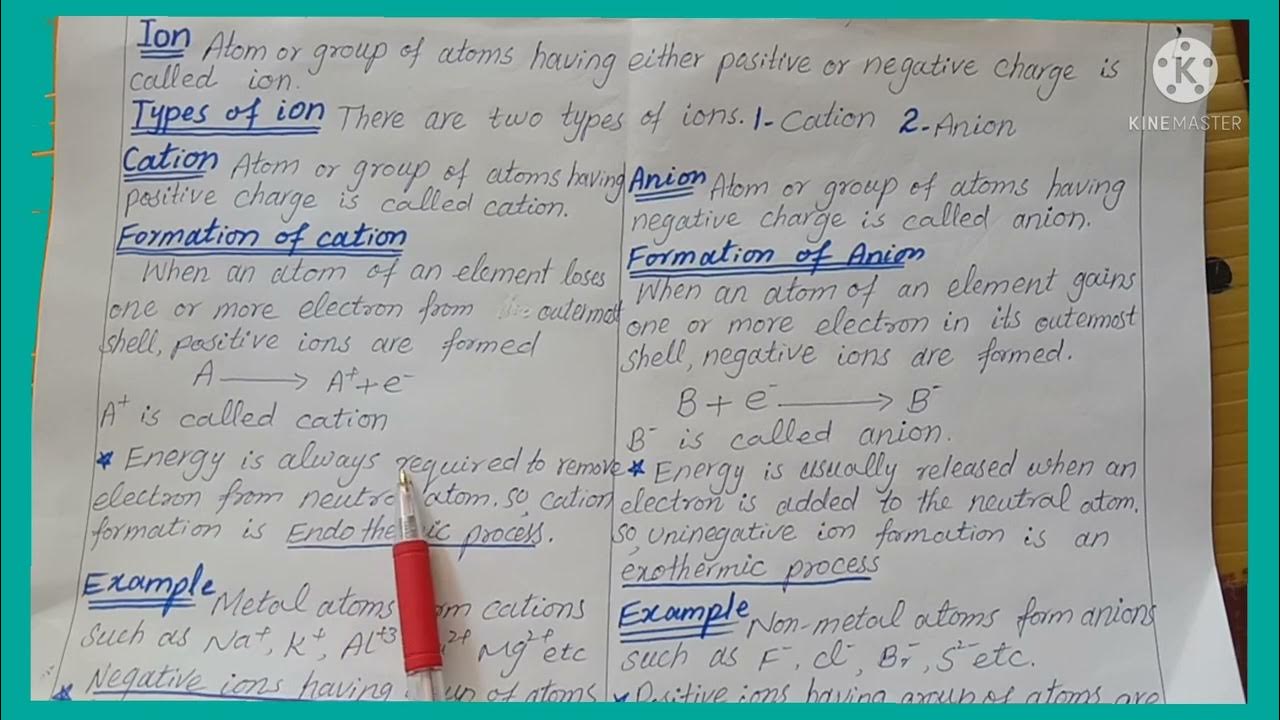 Ion Atom or group of atoms having either positive or negative charge is
called ion.
Types of ion There are two types of ions. 1- Cation 2- Anion
Cation Atom or group of atoms having
positive charge is called cation.
Formation of cation
When an atom of an element loses
one or more electron from outermost
shell, positive ions are formed
A ⟶ A⁺ + e⁻
A⁺ is called cation
* Energy is always required to remove
electron from neutral atom. so, cation
formation is Endothermic process.
Example Metal atoms form cations
such as Na⁺, K⁺, Al⁺³, Mg²⁺ etc
* Negative ions having group of atoms
Anion Atom or group of atoms having
negative charge is called anion.
Formation of Anion
When an atom of an element gains
one or more electron in its outermost
shell, negative ions are formed.
B + e⁻ ⟶ B⁻
B⁻ is called anion.
* Energy is usually released when an
electron is added to the neutral atom.
so, uninegative ion formation is an
exothermic process
Example Non-metal atoms form anions
such as F⁻, Cl⁻, Br⁻, S²⁻ etc.
* Positive ions having group of atoms are
KINEMASTER